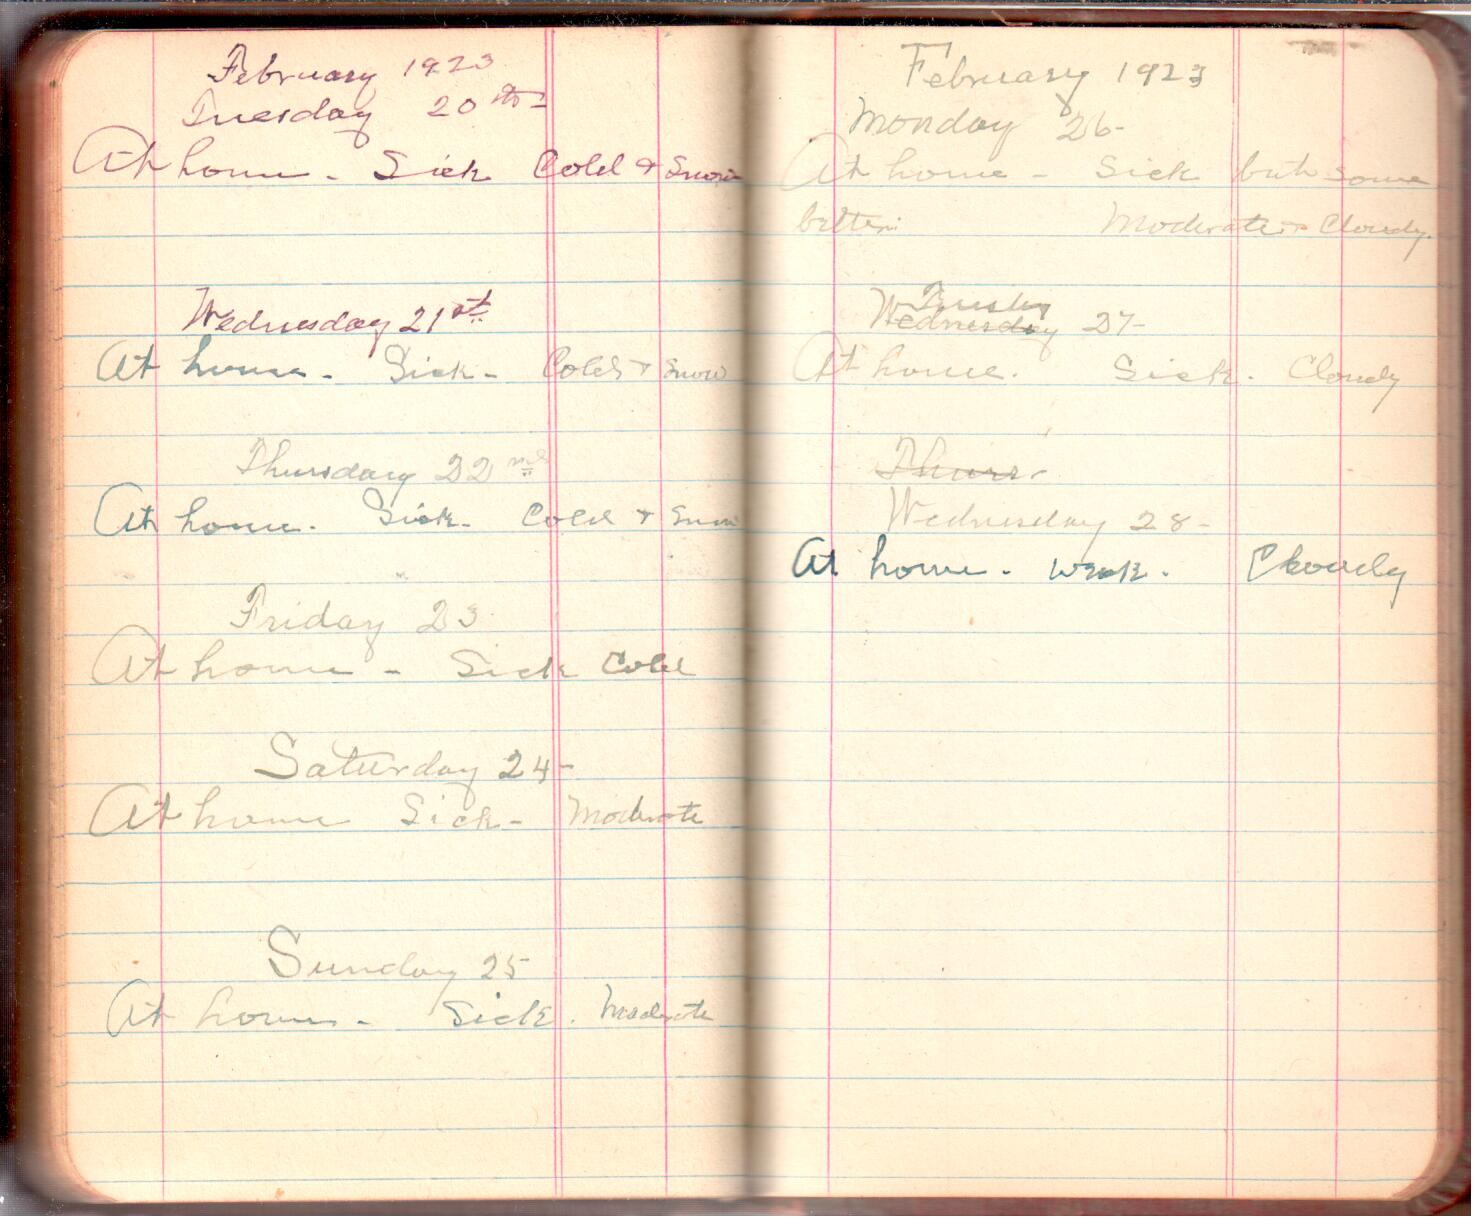 February 1923
Tuesday 20th
At home - Sick Cold & Snow
Wednesday 21st
At home - Sick - Cold & Snow
Thursday 22nd
At home. Sick - Cold & Snow
Friday 23
At home - Sick Cold
Saturday 24-
At home Sick - Moderate
Sunday 25
At home - Sick. Moderate
February 1923
Monday 26-
At home - Sick but some
better. Moderate & Cloudy.
Tuesday
Wednesday 27-
At home. Sick. Cloudy
Thurs.
Wednesday 28-
At home - weak. Cloudy